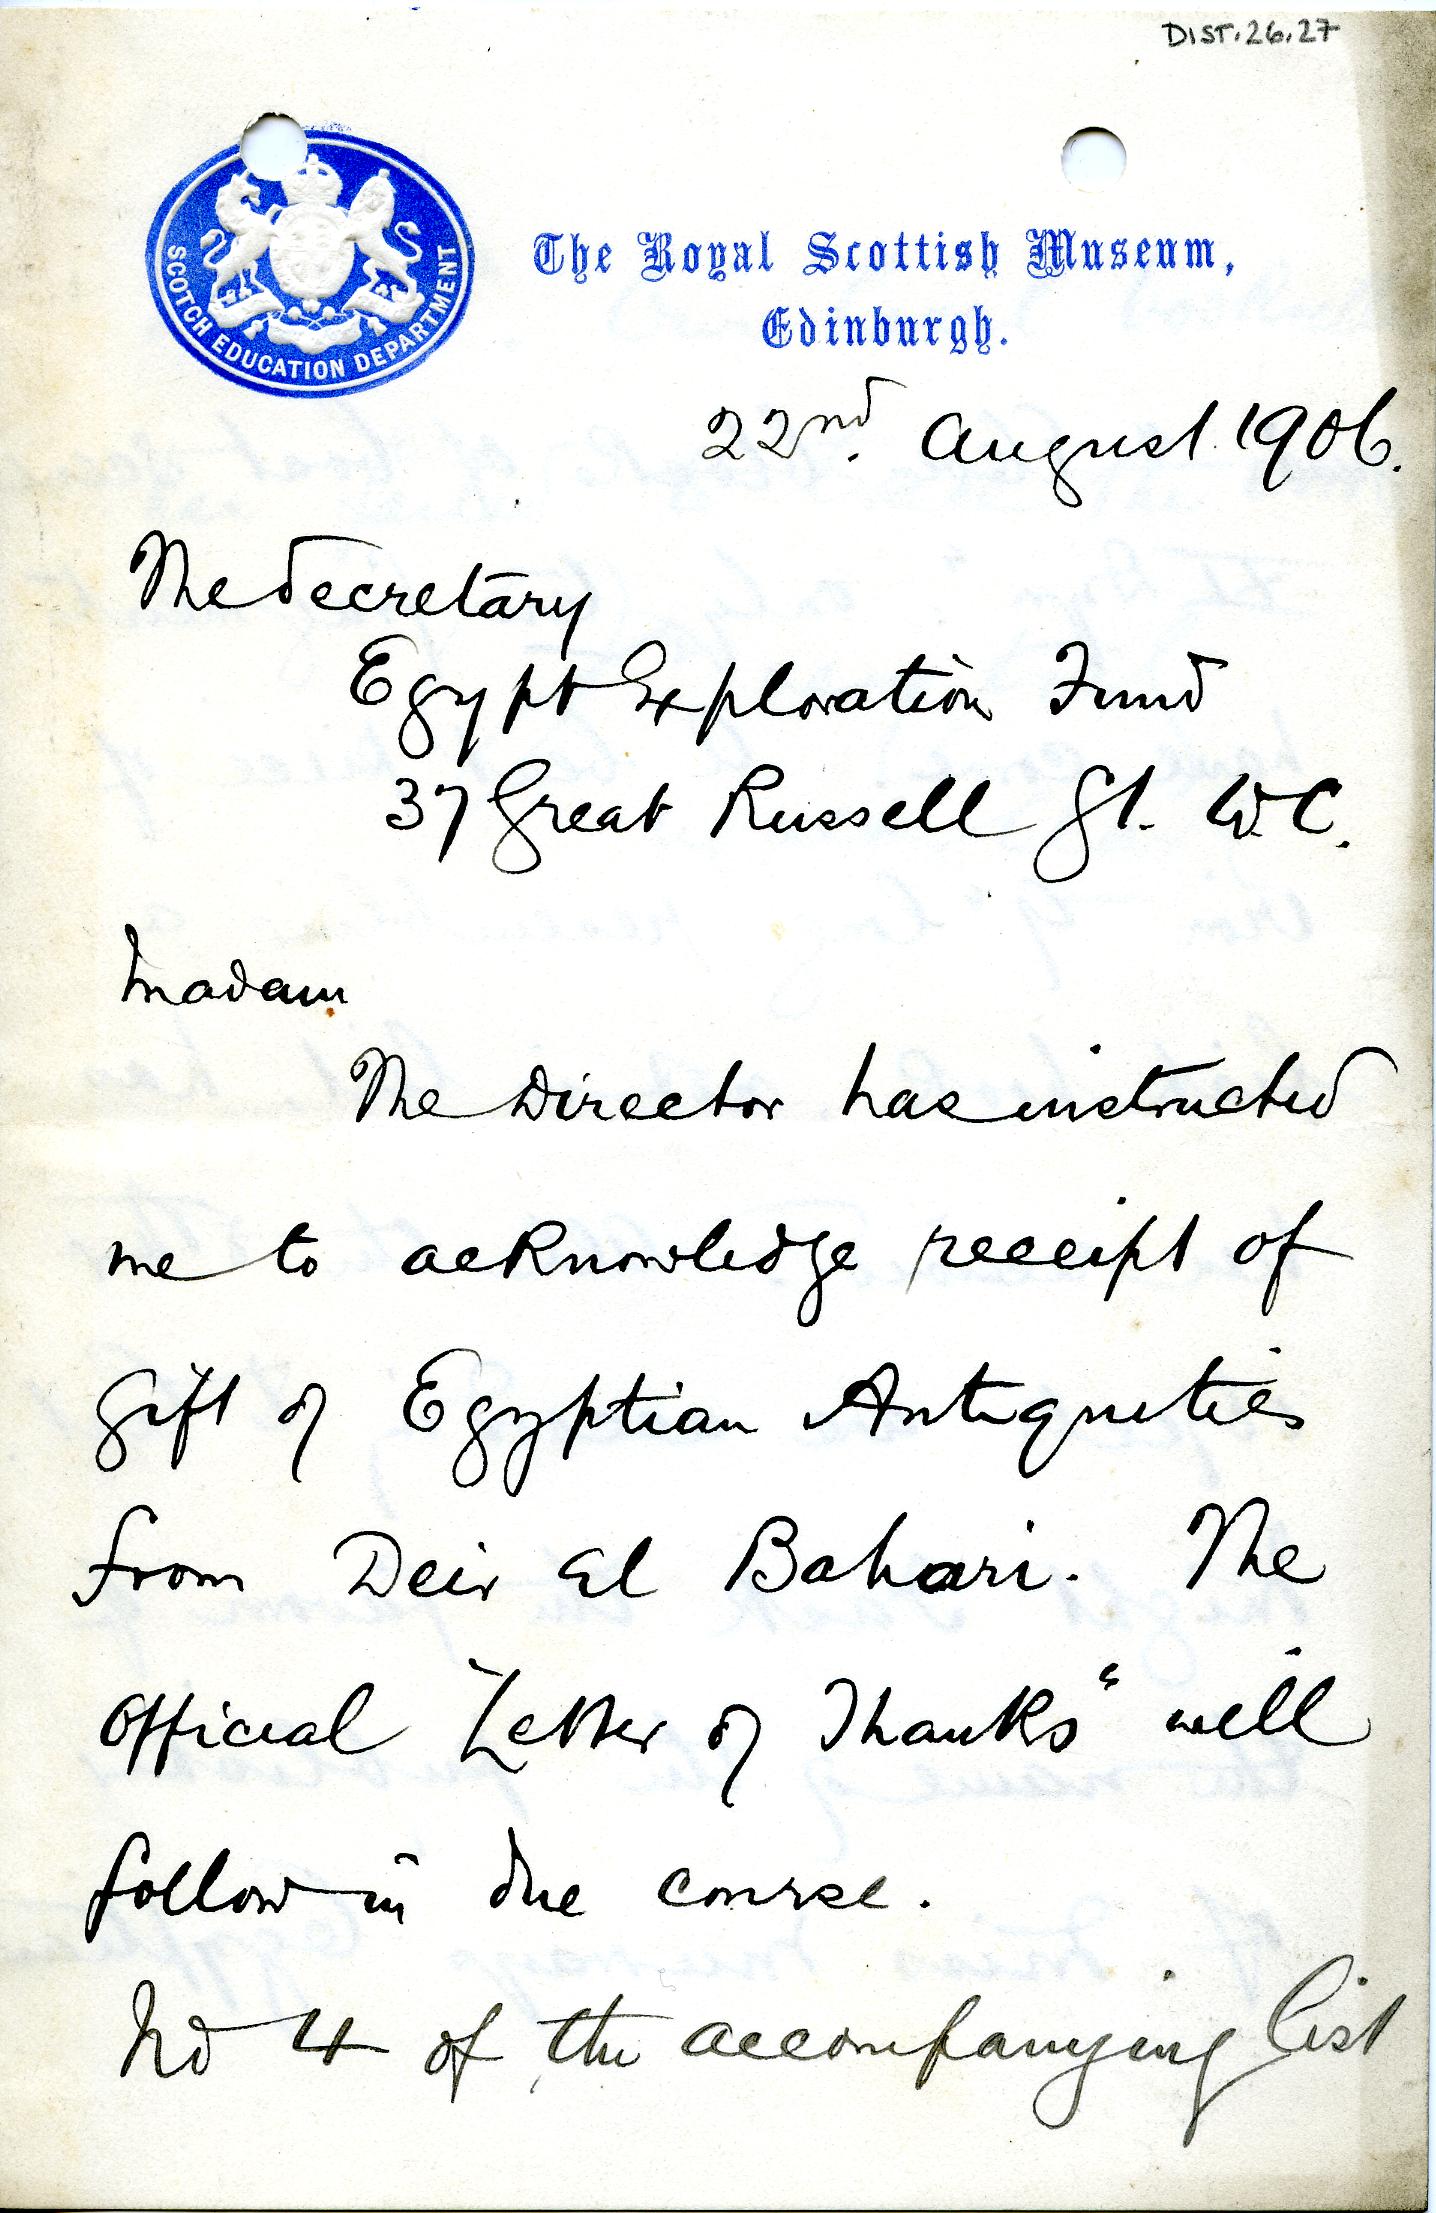 DIST.26.27
SCOTCH EDUCATION DEPARTMENT
The Royal Scottish Museum,
Edinburgh.
22nd. August 1906.
The Secretary
Egypt Exploration Fund
37 Great Russell St. W.C.
Madam
The Director has instructed
me to acknowledge receipt of
gift of Egyptian Antiquities
from Deir El Bahari. The
Official "Letter of Thanks" will
follow in due course.
No 4 of the accompanying list